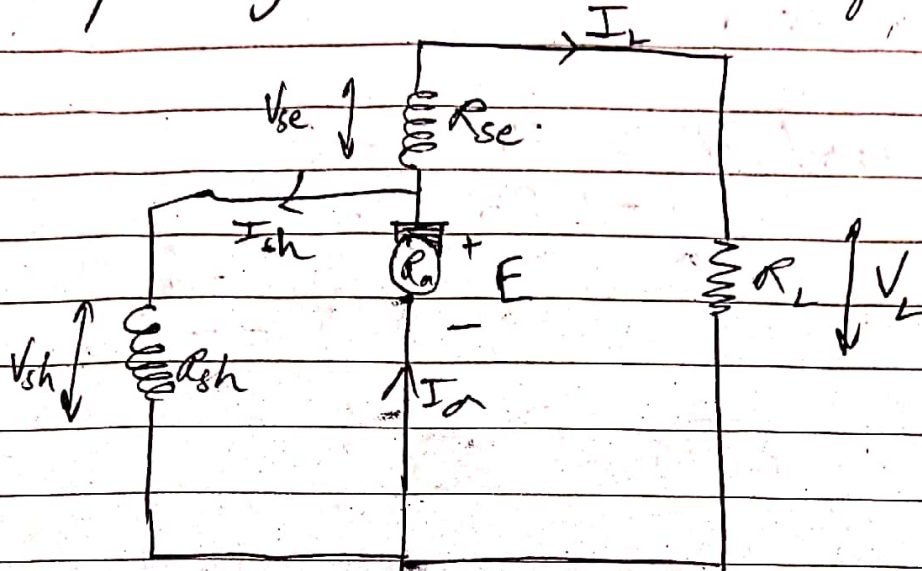 I_L
V_se
R_se.
I_sh
R_a
+
E
R_L
V_L
V_sh
R_sh
-
I_a